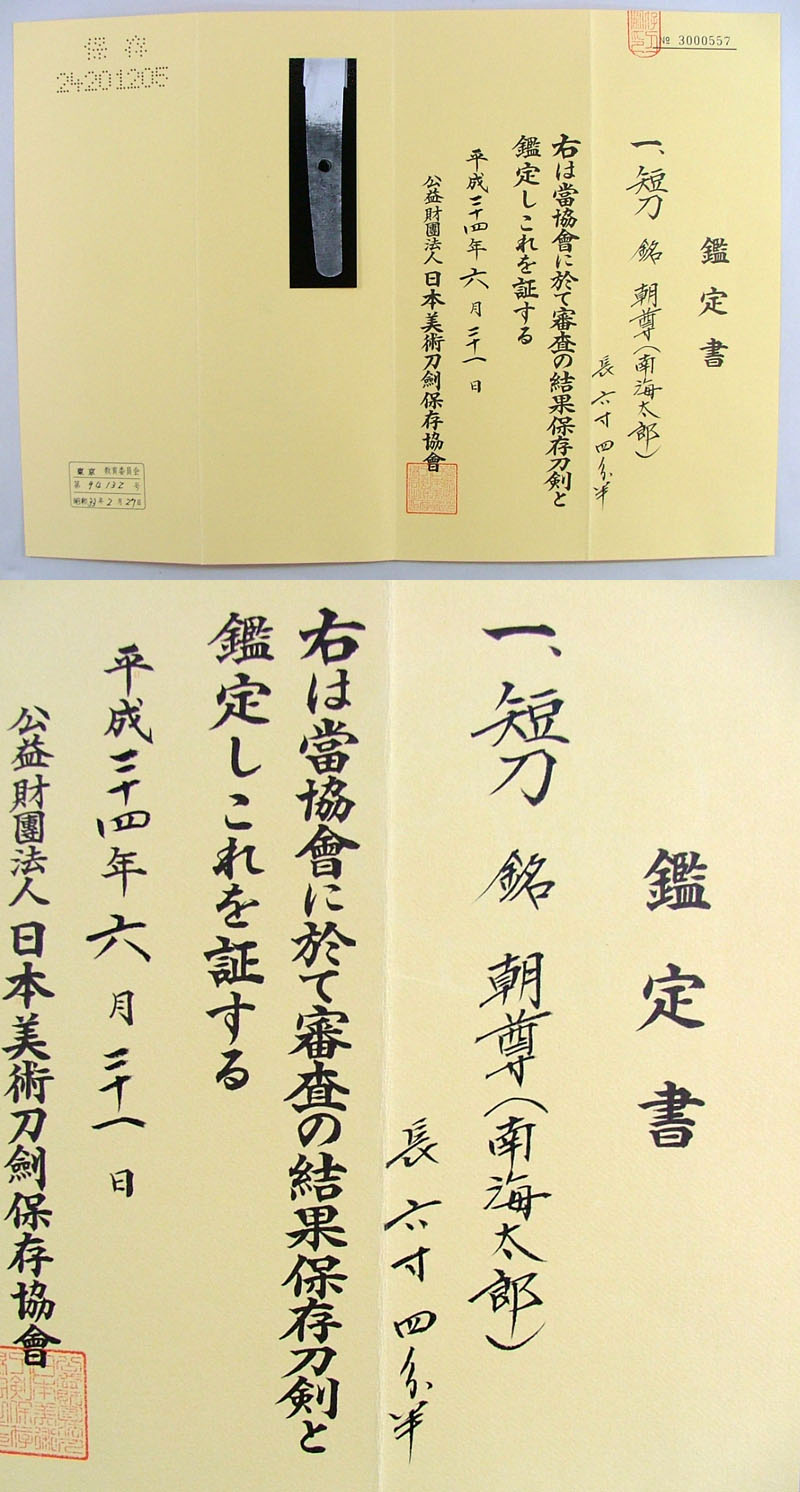 № 3000557
鑑定書
一、短刀 銘 朝尊(南海太郎)
長 六寸四分半
右は當協會に於て審査の結果保存刀剣と
鑑定しこれを証する
平成二十四年六月二十一日
公益財團法人日本美術刀劍保存協會
保存
24201205
東京 教育委員会
第 94132 号
昭和33年2月27日
鑑定書
一、短刀 銘 朝尊(南海太郎)
長 六寸四分半
右は當協會に於て審査の結果保存刀剣と
鑑定しこれを証する
平成二十四年六月二十一日
公益財團法人日本美術刀劍保存協會